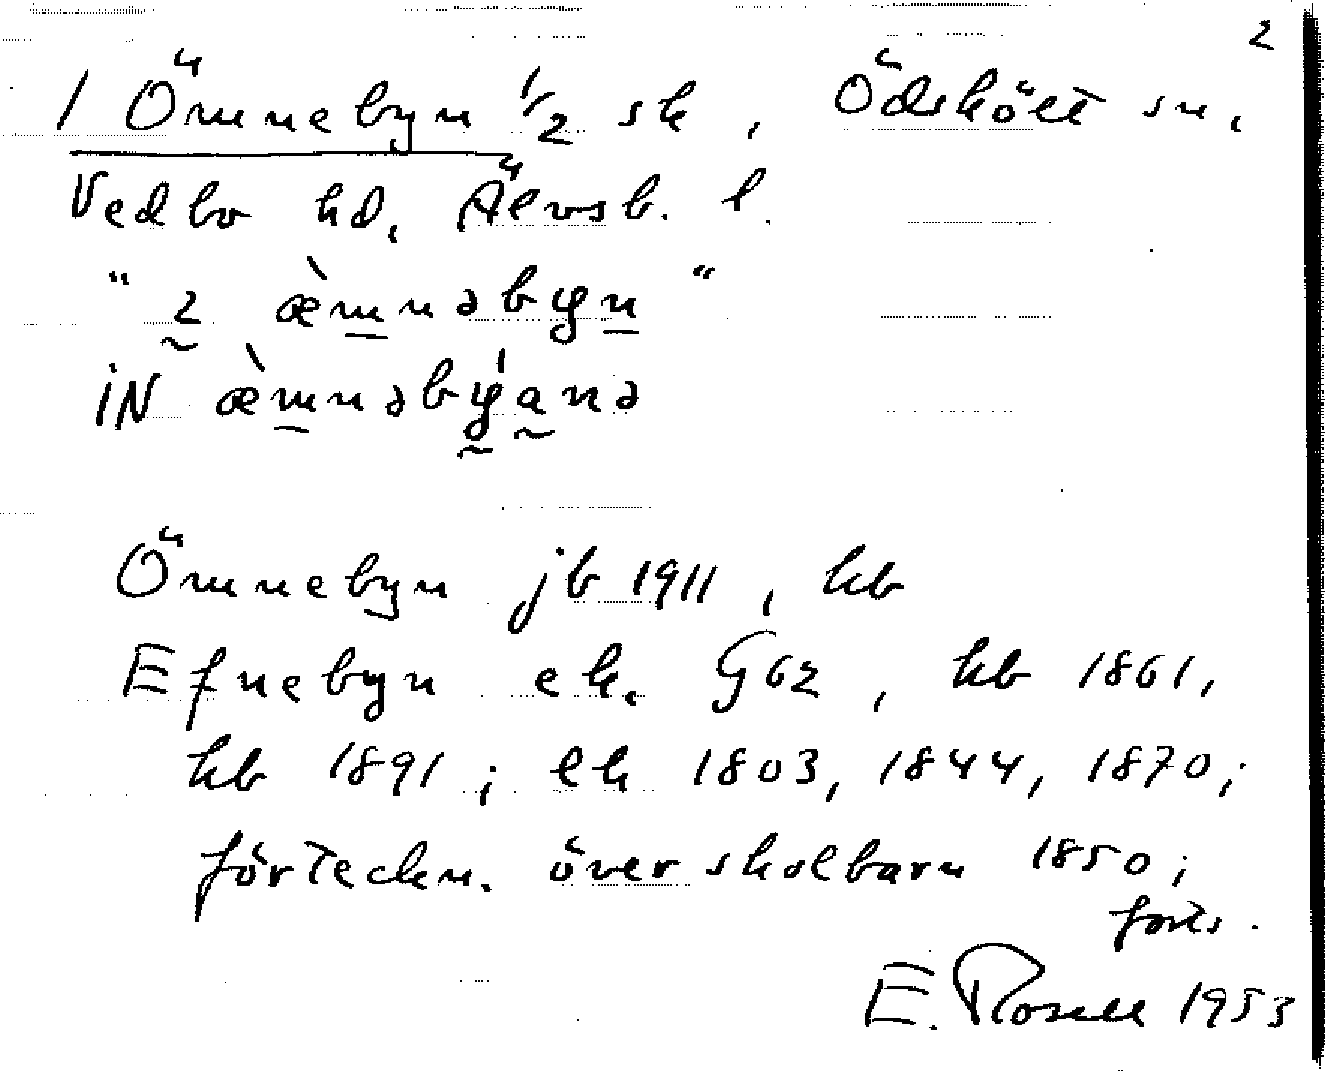 2
1 Ömnebyn 1/2 sk, Ödskölt sn,
Vedbo hd, Älvsb. l.
"2 æ̀mnəbyn"
iN æ̀mnəbýanə
Ömnebyn jb 1911, kb
Efnebyn ek. G62, kb 1861,
kb 1891; ek 1803, 1844, 1870;
förteckn. över skolbarn 1850;
forts.
E. Rosell 1953